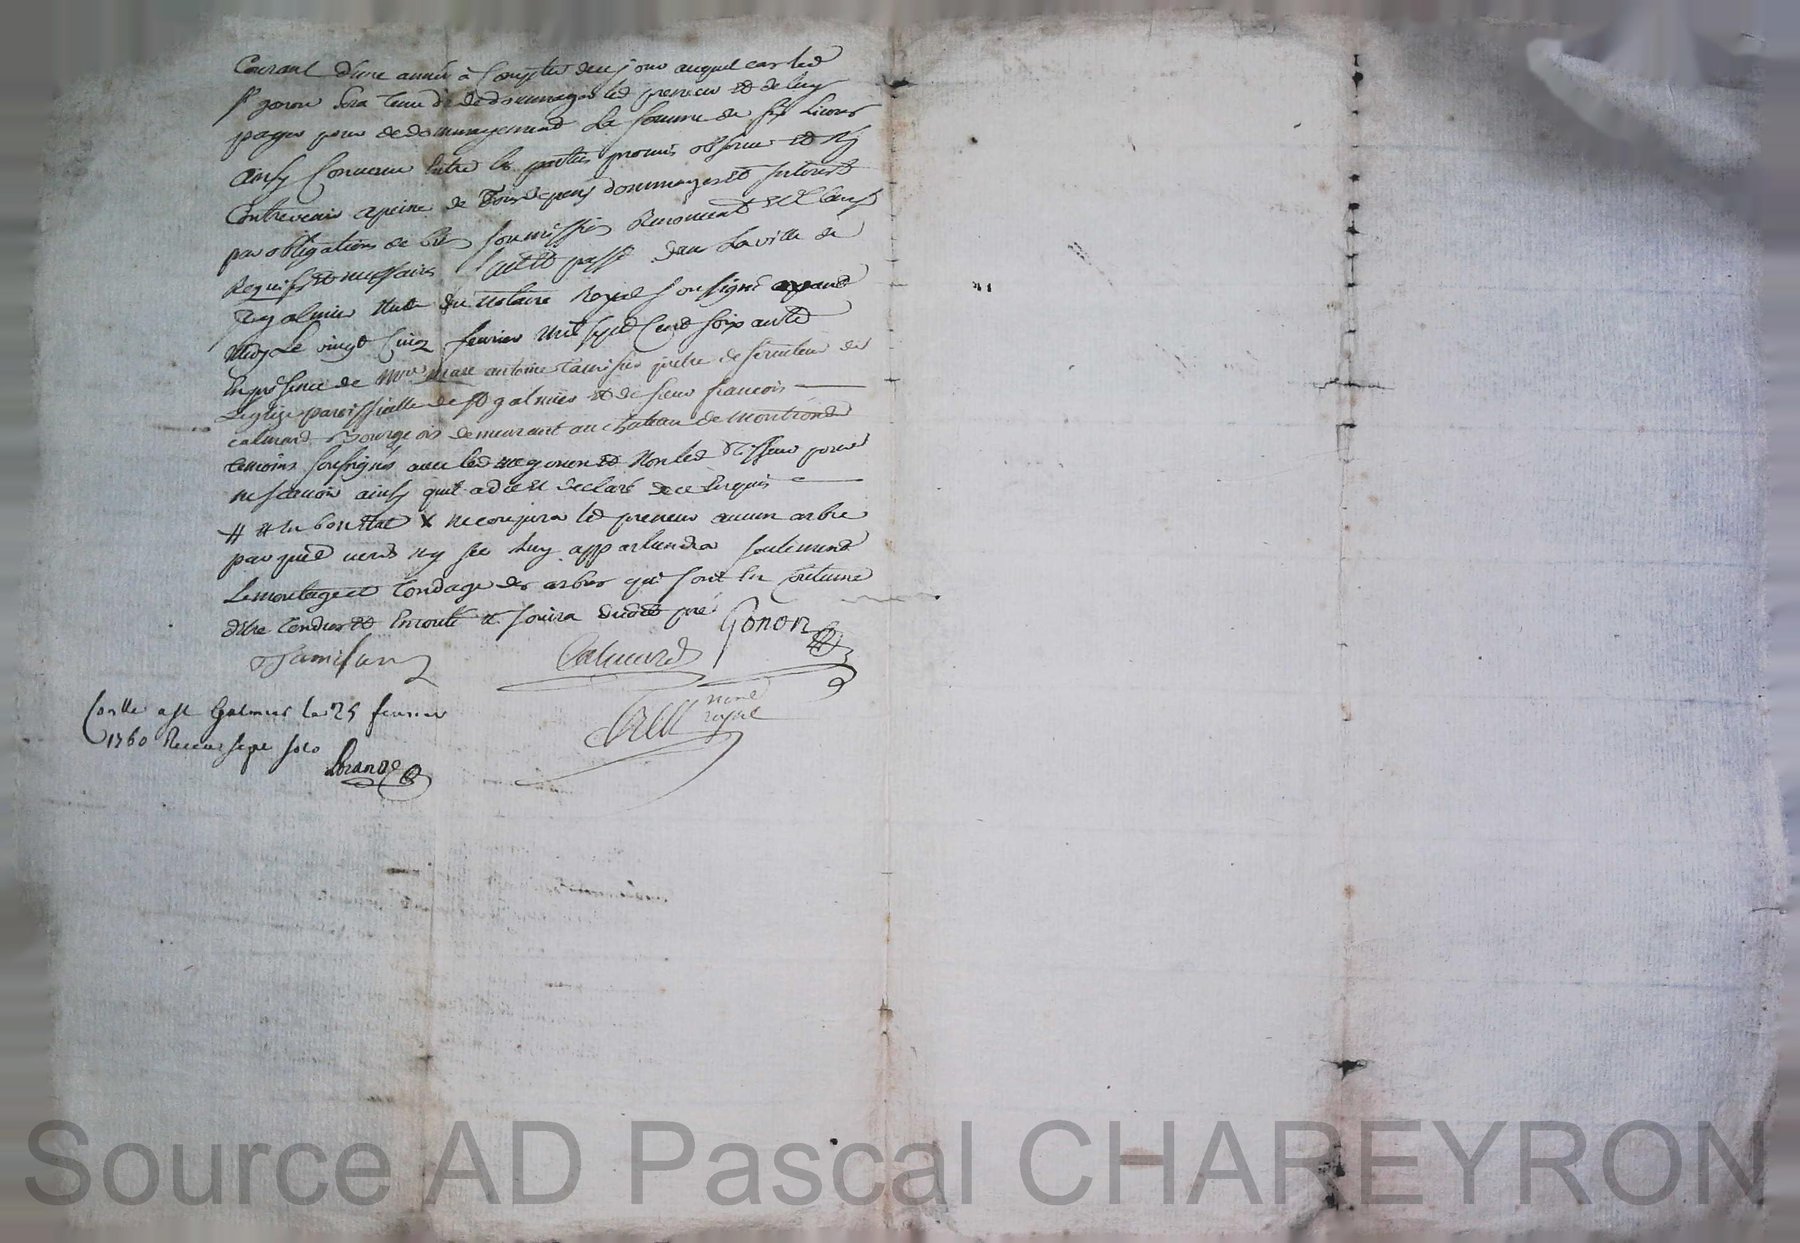 Courant d'une année à Compter de ce jour auquel cas led
sr gonon sera tenu de dedommager led preneur et de luy
payer pour dedommagement la somme de six livres
ainsy Convenu entre les parties promis observer et n'y
Contrevenir a peine de tous depens dommages et Interest
par obligations de biens soumissions Renonciat et Clauses
Requises et necessaires fait et passé dans la ville de
st galmier Etude du notaire Royal soussigné avant
midy Le vingt Cinq fevrier mil sept Cent soixante
En presence de mre marc antoine pretre desserviteur de
Leglize paroissialle de st galmier et de sieur francois
calmard Bourgeois demeurant au chateau de montrond
temoins soussignés avec led sr gonon et non led Tisseur pour
ne scavoir ainsy qu'il a dit et declaré de ce Enquis
# # En bon Etat X ne coupera led preneur aucun arbre
par pied verd ny sec luy appartiendra seulement
Lemontage et tondage des arbres qui sont En Coutume
d'être tondus et Emonté # jouira dudit pré
Gonon
Calmard
nore
royal
Conlle a st Galmier le 25 fevrier
1760 Receu sept sols
Source AD Pascal CHAREYRON